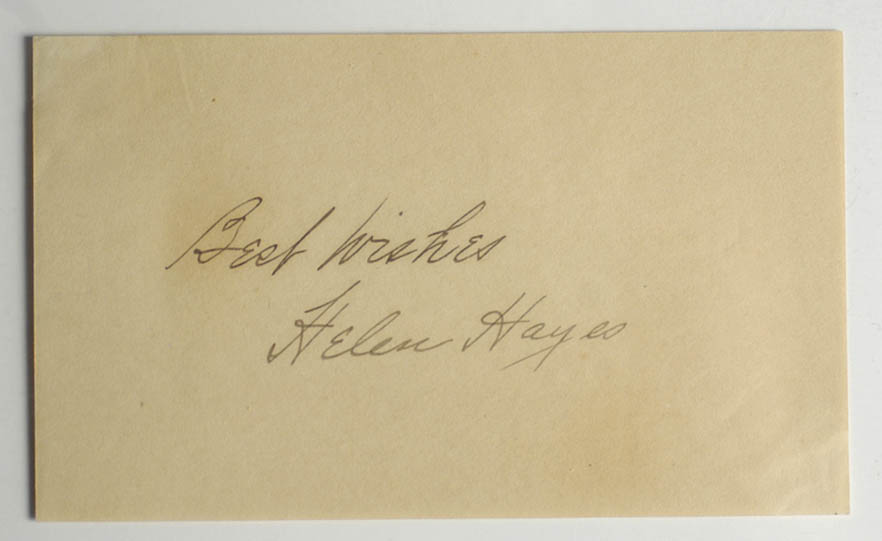 Best Wishes
Helen Hayes